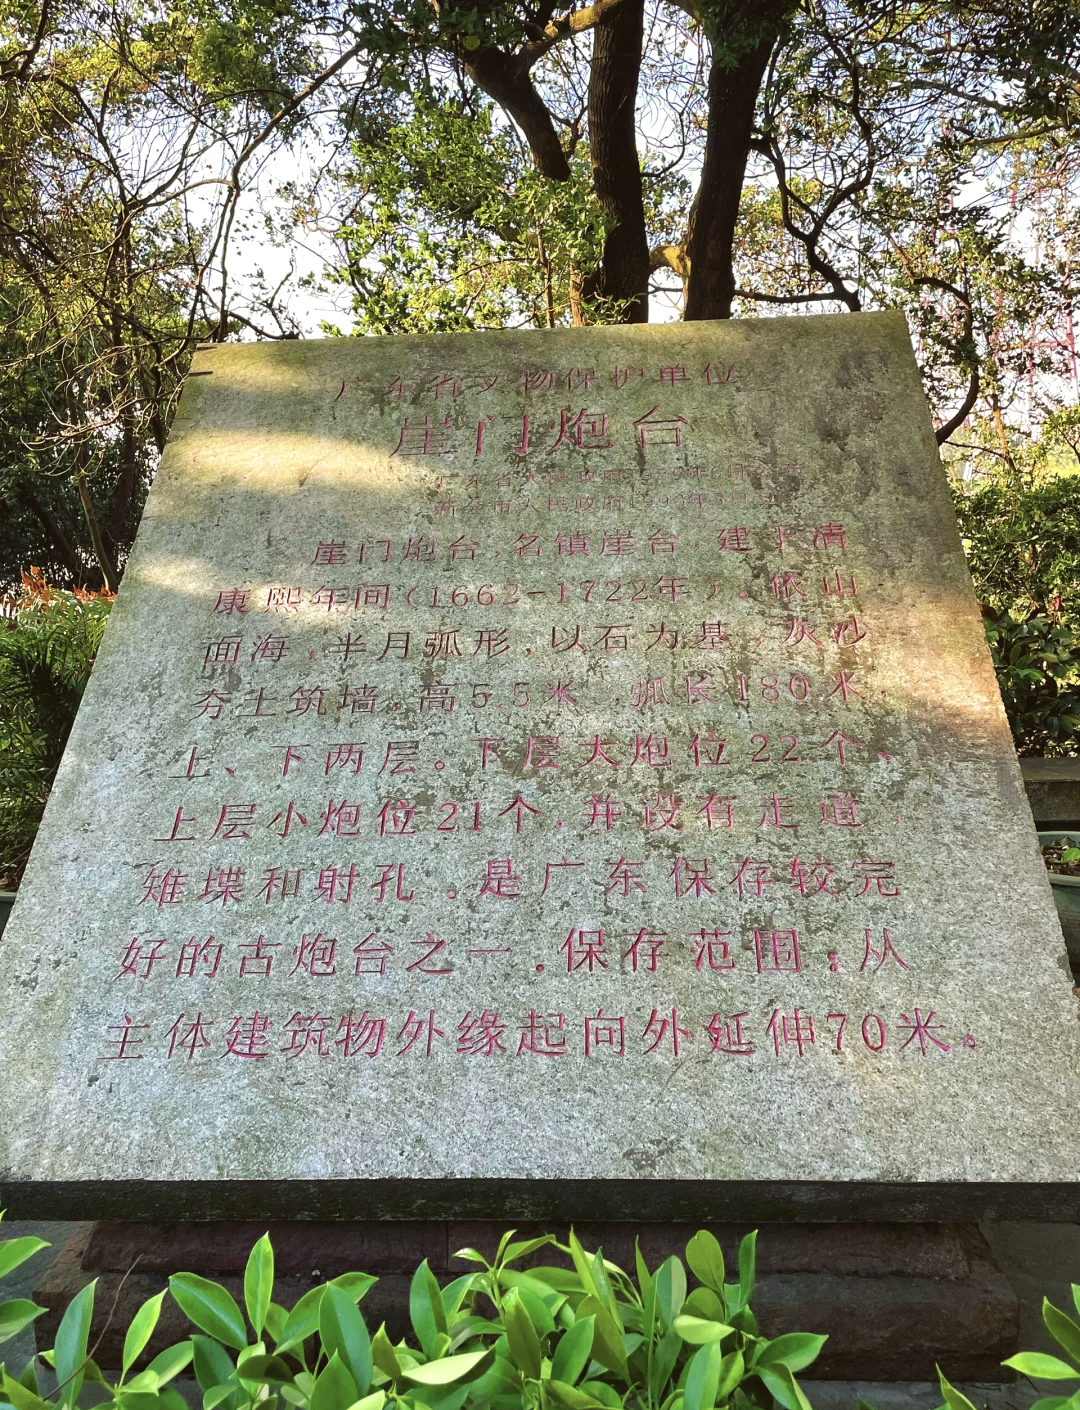 广东省文物保护单位
崖门炮台
广东省人民政府1989年6月公布
新会市人民政府199 年 月立
崖门炮台,名镇崖台,建于清
康熙年间(1662-1722年)。依山
面海,半月弧形,以石为基,灰沙
夯土筑墙,高5.5米,弧长180米,
上、下两层。下层大炮位22个、
上层小炮位21个,并设有走道,
雉堞和射孔。是广东保存较完
好的古炮台之一.保存范围:从
主体建筑物外缘起向外延伸70米。